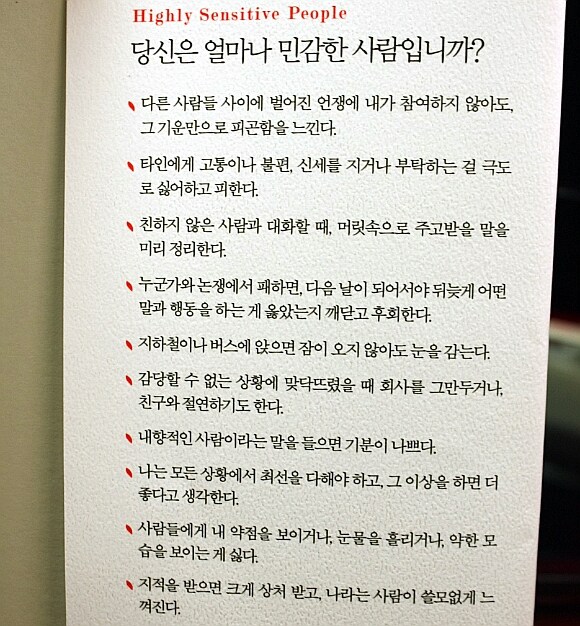 Highly Sensitive People
당신은 얼마나 민감한 사람입니까?
다른 사람들 사이에 벌어진 언쟁에 내가 참여하지 않아도,
그 기운만으로 피곤함을 느낀다.
타인에게 고통이나 불편, 신세를 지거나 부탁하는 걸 극도
로 싫어하고 피한다.
친하지 않은 사람과 대화할 때, 머릿속으로 주고받을 말을
미리 정리한다.
누군가와 논쟁에서 패하면, 다음 날이 되어서야 뒤늦게 어떤
말과 행동을 하는 게 옳았는지 깨닫고 후회한다.
지하철이나 버스에 앉으면 잠이 오지 않아도 눈을 감는다.
감당할 수 없는 상황에 맞닥뜨렸을 때 회사를 그만두거나,
친구와 절연하기도 한다.
내향적인 사람이라는 말을 들으면 기분이 나쁘다.
나는 모든 상황에서 최선을 다해야 하고, 그 이상을 하면 더
좋다고 생각한다.
사람들에게 내 약점을 보이거나, 눈물을 흘리거나, 약한 모
습을 보이는 게 싫다.
지적을 받으면 크게 상처 받고, 나라는 사람이 쓸모없게 느
껴진다.